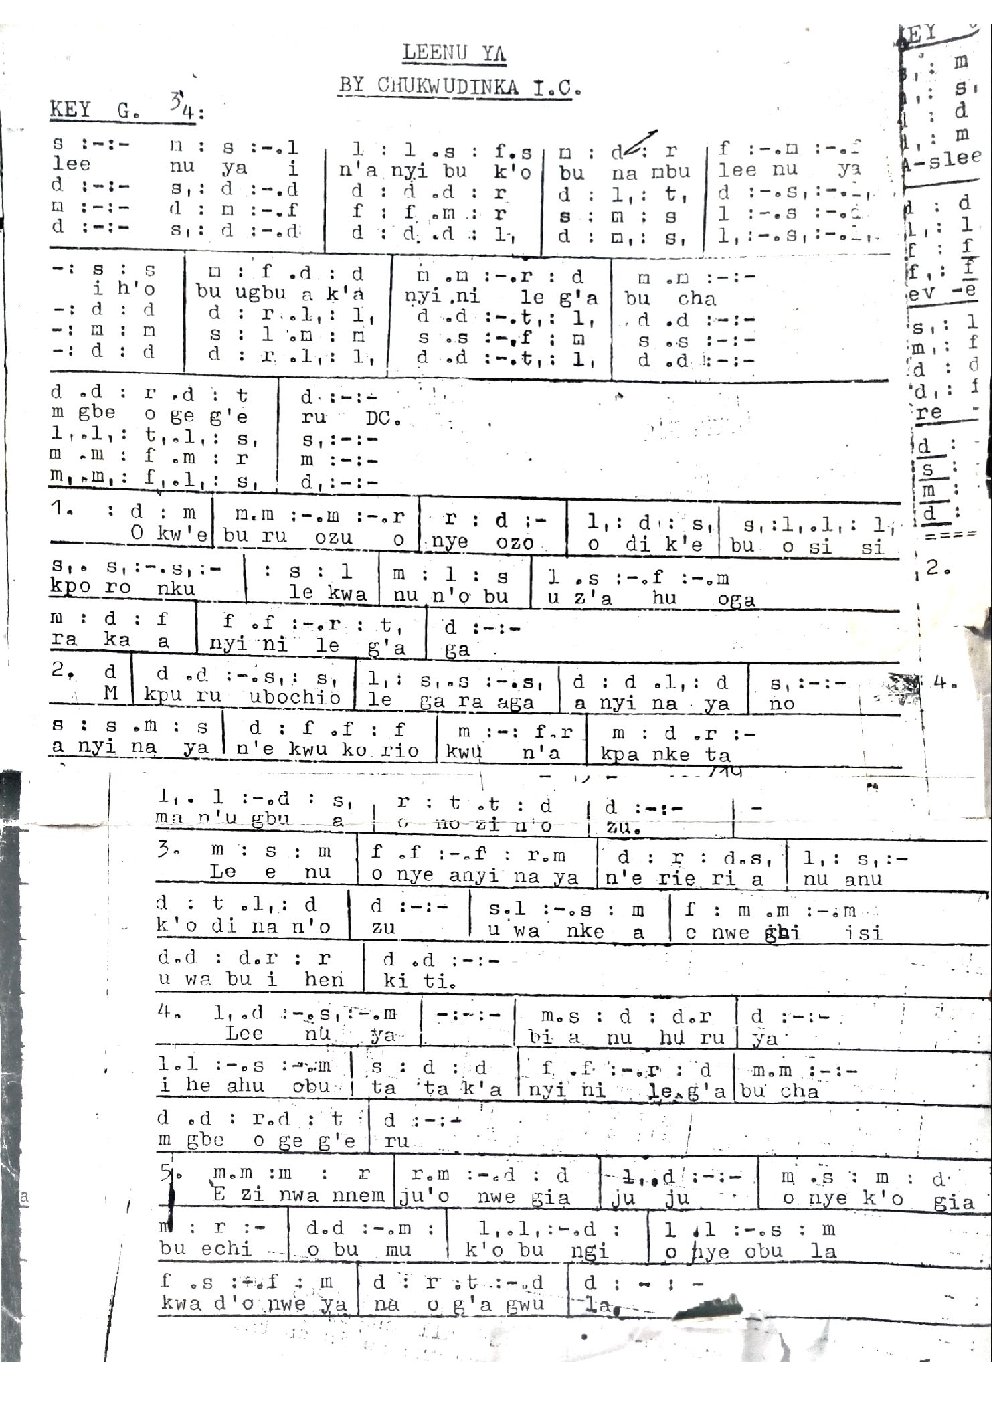 LEENU YA
BY CHUKWUDINKA I.C.
KEY G. 3/4:
s :-:- m : s :-.l | l : l .s : f.s | m : d : r | f :-.m :-.f
lee nu ya i | n'a nyi bu k'o | bu na mbu | lee nu ya
d :-:- s,: d :-.d | d : d .d : r | d : l,: t, | d :-.s,:-.l,
m :-:- d : m :-.f | f : f .m : r | s : m : s | l :-.s :-.l
d :-:- s,: d :-.d | d : d .d : l, | d : m,: s, | l,:-.s,:-.l,
-: s : s | m : f .d : d | m .m :-.r : d | m .m :-:-
i h'o | bu ugbu a k'a | nyi ni le g'a | bu cha
-: d : d | d : r .l,: l, | d .d :-.t,: l, | d .d :-:-
-: m : m | s : l .m : m | s .s :-.f : m | s .s :-:-
-: d : d | d : r .l,: l, | d .d :-.t,: l, | d .d :-:-
d .d : r .d : t | d :-:-
m gbe o ge g'e | ru DC.
l,.l,: t,.l,: s, | s,:-:-
m .m : f .m : r | m :-:-
m,.m,: f,.l,: s, | d,:-:-
1. : d : m | m.m :-.m :-.r | r : d :- | l,: d : s, | s,:l,.l,: l,
O kw'e | bu ru ozu o | nye ozo | o di k'e | bu o si si
s,. s,:-.s,:- | : s : l | m : l : s | l .s :-.f :-.m
kpo ro nku | le kwa | nu n'o bu | u z'a hu oga
m : d : f | f .f :-.r : t, | d :-:-
ra ka a | nyi ni le g'a | ga
2. d | d .d :-.s,: s, | l,: s,.s :-.s, | d : d .l,: d | s,:-:-
M | kpu ru ubochio | le ga ra aga | a nyi na ya | no
s : s .m : s | d : f .f : f | m :-: f.r | m : d .r :-
a nyi na ya | n'e kwu ko rio | kwu n'a | kpa nke ta
l,. l :-.d : s, | r : t .t : d | d :-:- | -
ma n'u gbu a | o no zi n'o | zu.
3. m : s : m | f .f :-.f : r.m | d : r : d.s, | l,: s,:-
Le e nu | o nye anyi na ya | n'e rie ri a | nu anu
d : t .l,: d | d :-:- | s.l :-.s : m | f : m .m :-.m
k'o di na n'o | zu | u wa nke a | e nwe ghi isi
d.d : d.r : r | d .d :-:-
u wa bu i hen | ki ti.
4. l,.d :-.s,:-.m | -:-:- | m.s : d : d.r | d :-:-
Lee nu ya | bi a nu hu ru | ya
l.l :-.s :-.m | s : d : d | f .f :-.r : d | m.m :-:-
i he ahu obu | ta ta k'a | nyi ni le g'a | bu cha
d .d : r.d : t | d :-:-
m gbe o ge g'e | ru
5. m.m :m : r | r.m :-.d : d | l,.d :-:- | m .s : m : d
E zi nwa nnem | ju'o nwe gia | ju ju | o nye k'o gia
m : r :- | d.d :-.m : | l,.l,:-.d : | l .l :-.s : m
bu echi | o bu mu | k'o bu ngi | o nye obu la
f .s :-.f : m | d : r .t :-.d | d : - : -
kwa d'o nwe ya | na o g'a gwu | la.
A-slee
ev -e
re -
====
2.
4.